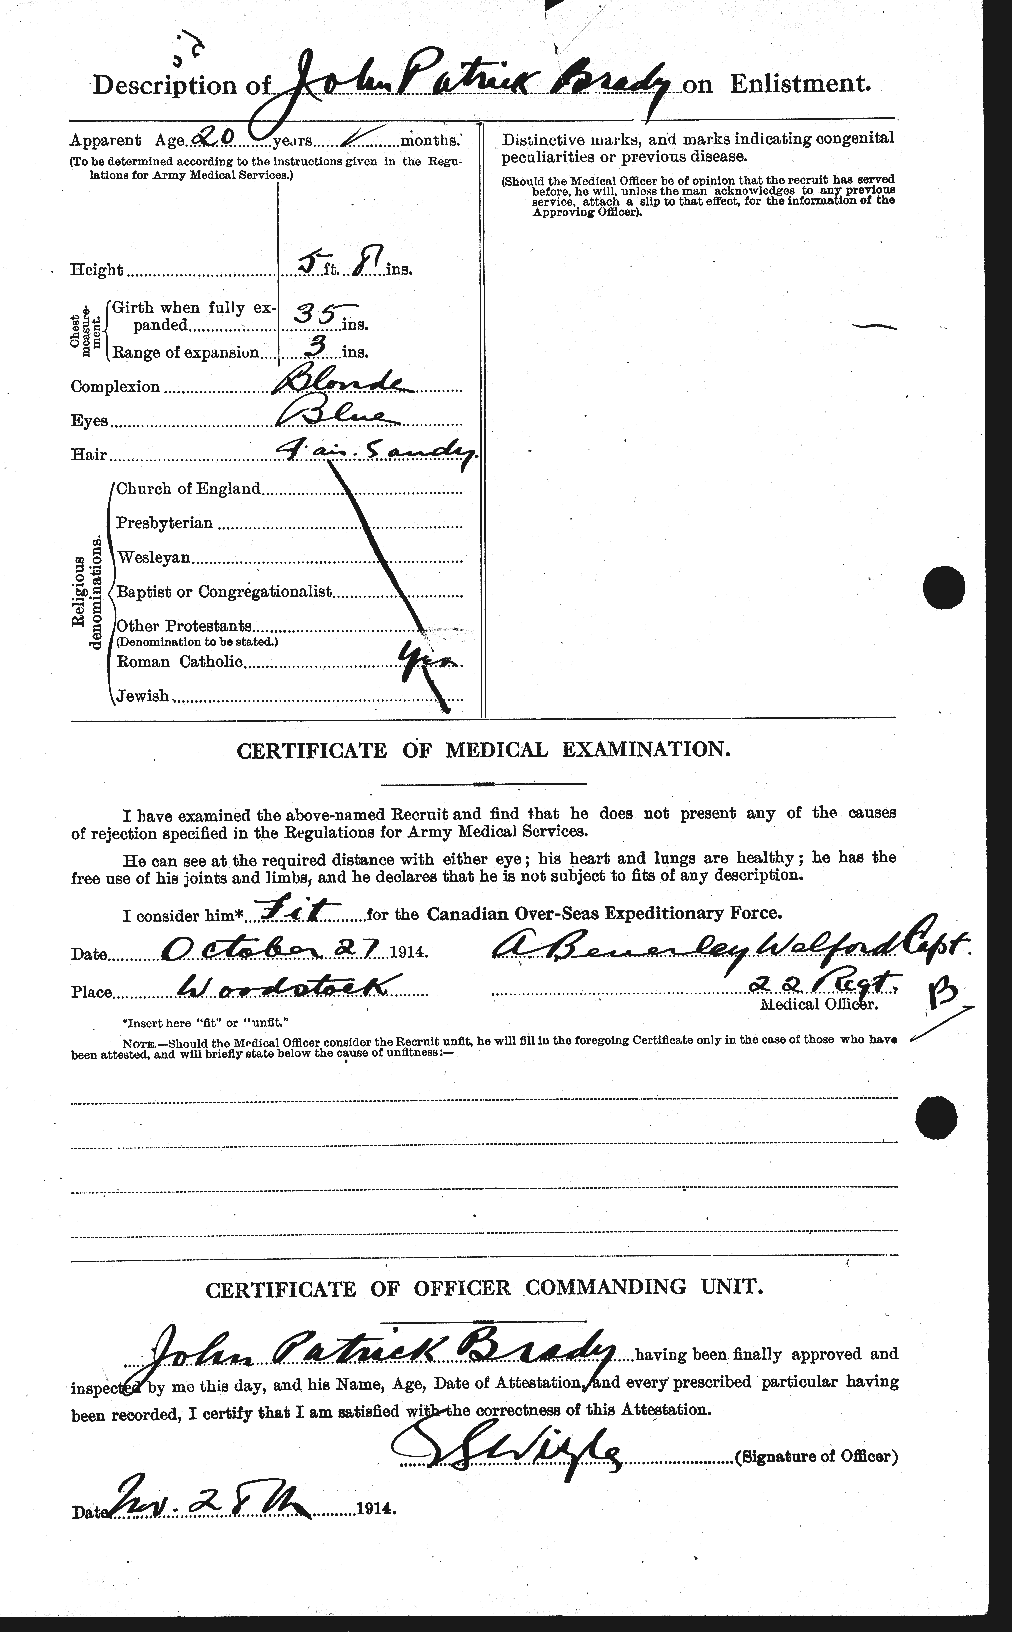 Description of John Patrick Brady on Enlistment.
Apparent Age 20 years months.
(To be determined according to the instructions given in the Regu-
lations for Army Medical Services.)
Height 5 ft. 8 ins.
Chest measure-ment.
Girth when fully ex-
panded 35 ins.
Range of expansion 3 ins.
Complexion Blonde
Eyes Blue
Hair Fair. Sandy.
Religious denominations.
Church of England
Presbyterian
Wesleyan
Baptist or Congregationalist
Other Protestants
(Denomination to be stated.)
Roman Catholic Yes
Jewish
Distinctive marks, and marks indicating congenital
peculiarities or previous disease.
(Should the Medical Officer be of opinion that the recruit has served
before, he will, unless the man acknowledges to any previous
service, attach a slip to that effect, for the information of the
Approving Officer).
CERTIFICATE OF MEDICAL EXAMINATION.
I have examined the above-named Recruit and find that he does not present any of the causes
of rejection specified in the Regulations for Army Medical Services.
He can see at the required distance with either eye; his heart and lungs are healthy; he has the
free use of his joints and limbs, and he declares that he is not subject to fits of any description.
I consider him* Fit for the Canadian Over-Seas Expeditionary Force.
Date October 27 1914. A Beverley Welford Capt.
Place Woodstock 22 Regt.
Medical Officer.
B
*Insert here "fit" or "unfit."
NOTE.—Should the Medical Officer consider the Recruit unfit, he will fill in the foregoing Certificate only in the case of those who have
been attested, and will briefly state below the cause of unfitness:—
CERTIFICATE OF OFFICER COMMANDING UNIT.
John Patrick Brady having been finally approved and
inspected by me this day, and his Name, Age, Date of Attestation, and every prescribed particular having
been recorded, I certify that I am satisfied with the correctness of this Attestation.
(Signature of Officer)
Date Nov. 28th 1914.